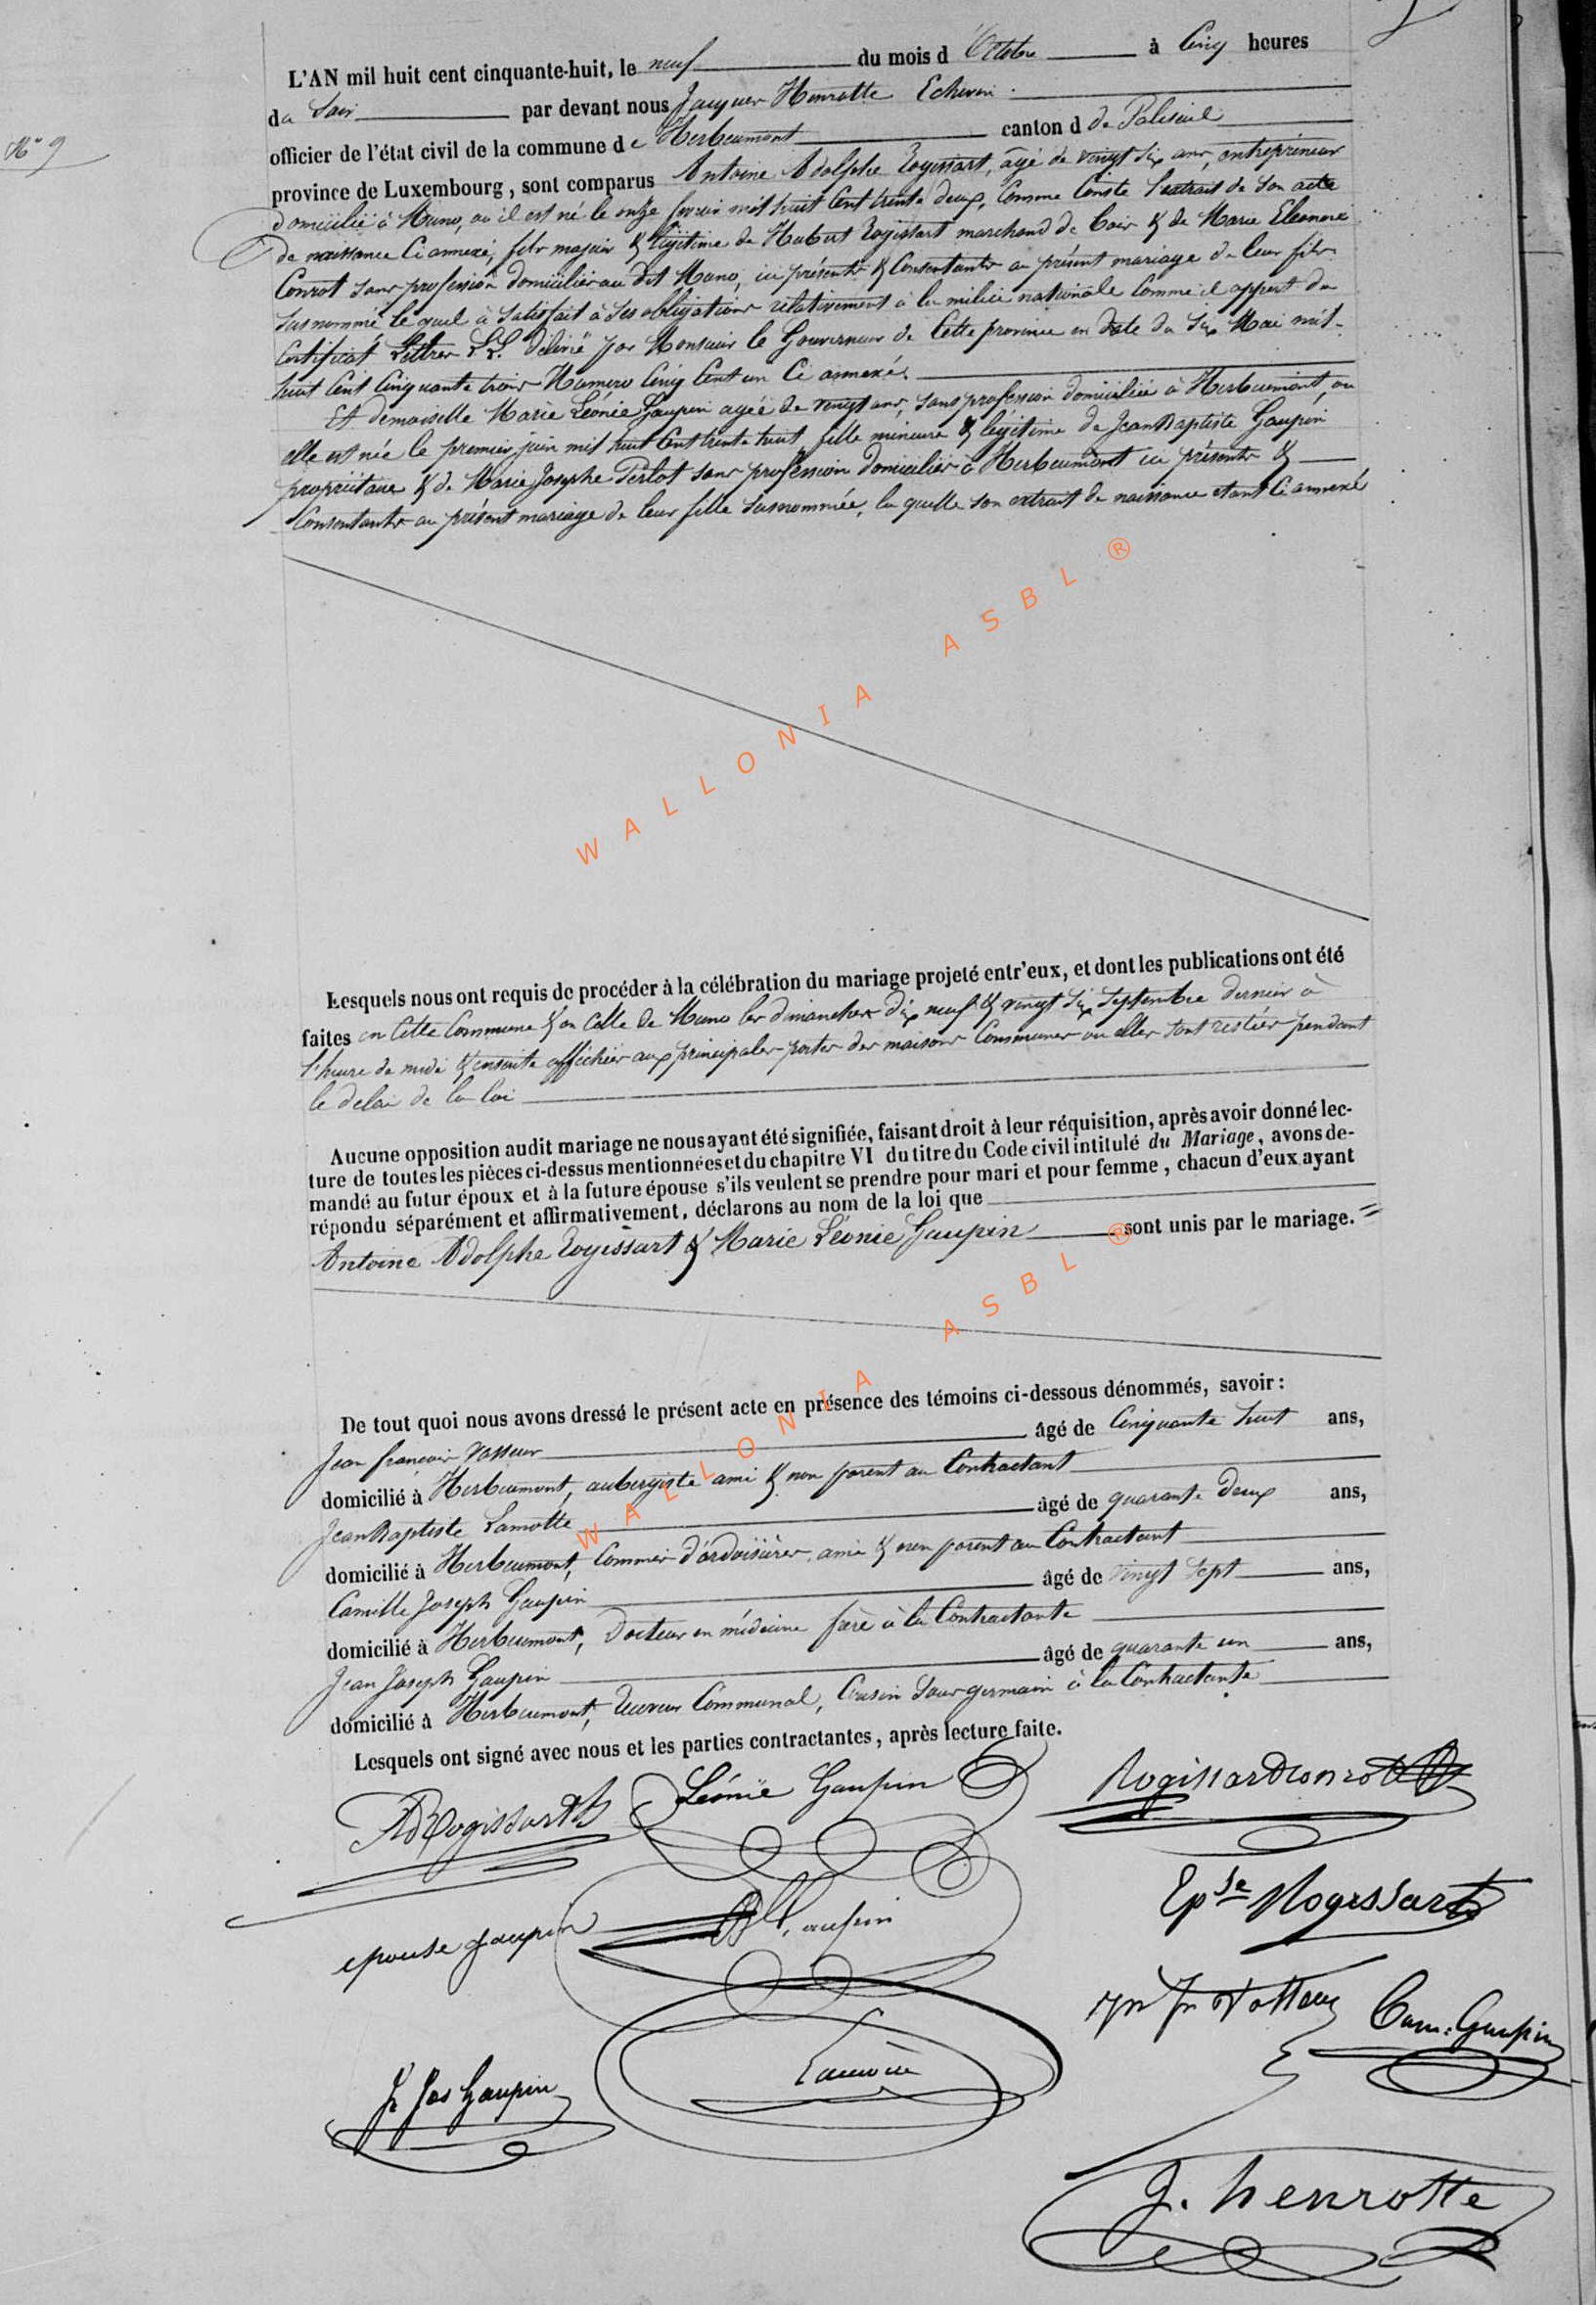 N° 9
L'AN mil huit cent cinquante-huit, le neuf du mois d'Octobre à Cinq heures
du Soir par devant nous Jacques Henrotte Echevin
officier de l'état civil de la commune de Herbeumont canton d de Paliseul
province de Luxembourg, sont comparus Antoine Adolphe Rogissart, âgé de vingt six ans, entrepreneur
domicilié à Muno, ou il est né le onze fevrier mil huit Cent trente deux, Comme Conste l'extrait de Son acte
de naissance Ci annexé, fils majeur & légitime de Hubert Rogissart marchand de bois & de Marie Eléonore
Conrot sans profession domiciliés au dit Muno, ici présents & Consentants au présent mariage de leur fils
sus nommé le quel à Satisfait à Ses obligations relativement à la milice nationale Comme il appert du
Certificat Lettres LL. délivré par Monsieur le Gouverneur de Cette province en date du Six Mai mil-
huit Cent Cinquante trois Numero Cinq Cent un Ci annexé.
Et demoiselle Marie Léonie Gaupin agée de vingt ans, sans profession domiciliée à Herbeumont, ou
elle est née le premier juin mil huit Cent trente huit, fille mineure & légitime de Jean Baptiste Gaupin
propriétaire & de Marie Josephe Perlot sans profession domiciliés à Herbeumont ici présents &
Consentants au présent mariage de leur fille susnommée, la quelle son extrait de naissance étant Ci annexé
WALLONIA ASBL ®
Lesquels nous ont requis de procéder à la célébration du mariage projeté entr'eux, et dont les publications ont été
faites en Cette Commune & en Celle de Muno les dimanches dix neuf & vingt six Septembre dernier à
l'heure de midi & ensuite affichées aux principales portes des maisons Communes ou elles sont restées pendant
le delai de la loi
Aucune opposition audit mariage ne nous ayant été signifiée, faisant droit à leur réquisition, après avoir donné lec-
ture de toutes les pièces ci-dessus mentionnées et du chapitre VI du titre du Code civil intitulé du Mariage, avons de-
mandé au futur époux et à la future épouse s'ils veulent se prendre pour mari et pour femme, chacun d'eux ayant
répondu séparément et affirmativement, déclarons au nom de la loi que
Antoine Adolphe Rogissart & Marie Léonie Gaupin sont unis par le mariage.=
WALLONIA ASBL ®
De tout quoi nous avons dressé le présent acte en présence des témoins ci-dessous dénommés, savoir:
Jean françois Vasseur âgé de Cinquante huit ans,
domicilié à Herbeumont, aubergiste ami & non parent au Contractant
Jean Baptiste Lamotte âgé de quarante deux ans,
domicilié à Herbeumont, Commis d'ardoisières, ami & non parent au Contractant
Camille Joseph Gaupin âgé de vingt Sept ans,
domicilié à Herbeumont, Docteur en médecine frère à la Contractante
Jean Joseph Gaupin âgé de quarante un ans,
domicilié à Herbeumont, Receveur Communal, Cousin Sous germain à la Contractante
Lesquels ont signé avec nous et les parties contractantes, après lecture faite.
ADRogissart Léonie Gaupin Rogissart Conrot
Epse Rogissart
epouse gaupin Gaupin
Cam. Gaupin
J. Jos Gaupin
J. henrotte